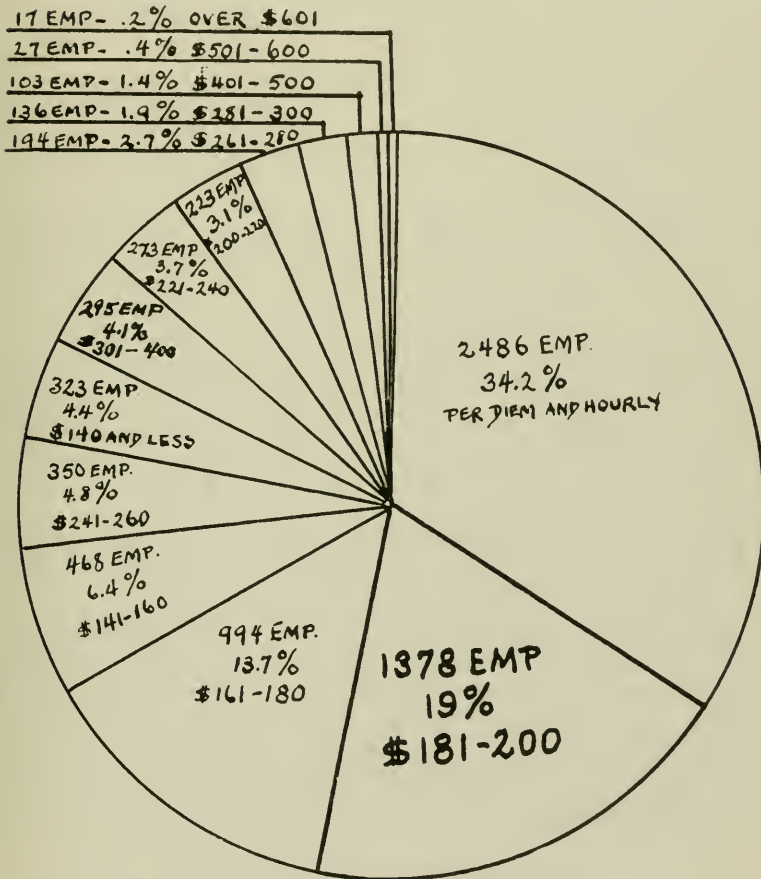 17 EMP- .2% OVER $601
27 EMP- .4% $501-600
103 EMP- 1.4% $401-500
136 EMP- 1.9% $281-300
194 EMP- 2.7% $261-280
223 EMP
3.1%
$200-220
273 EMP
3.7%
$221-240
295 EMP
4.1%
$301-400
323 EMP
4.4%
$140 AND LESS
350 EMP.
4.8%
$241-260
468 EMP.
6.4%
$141-160
994 EMP.
13.7%
$161-180
1378 EMP
19%
$181-200
2486 EMP.
34.2%
PER DIEM AND HOURLY